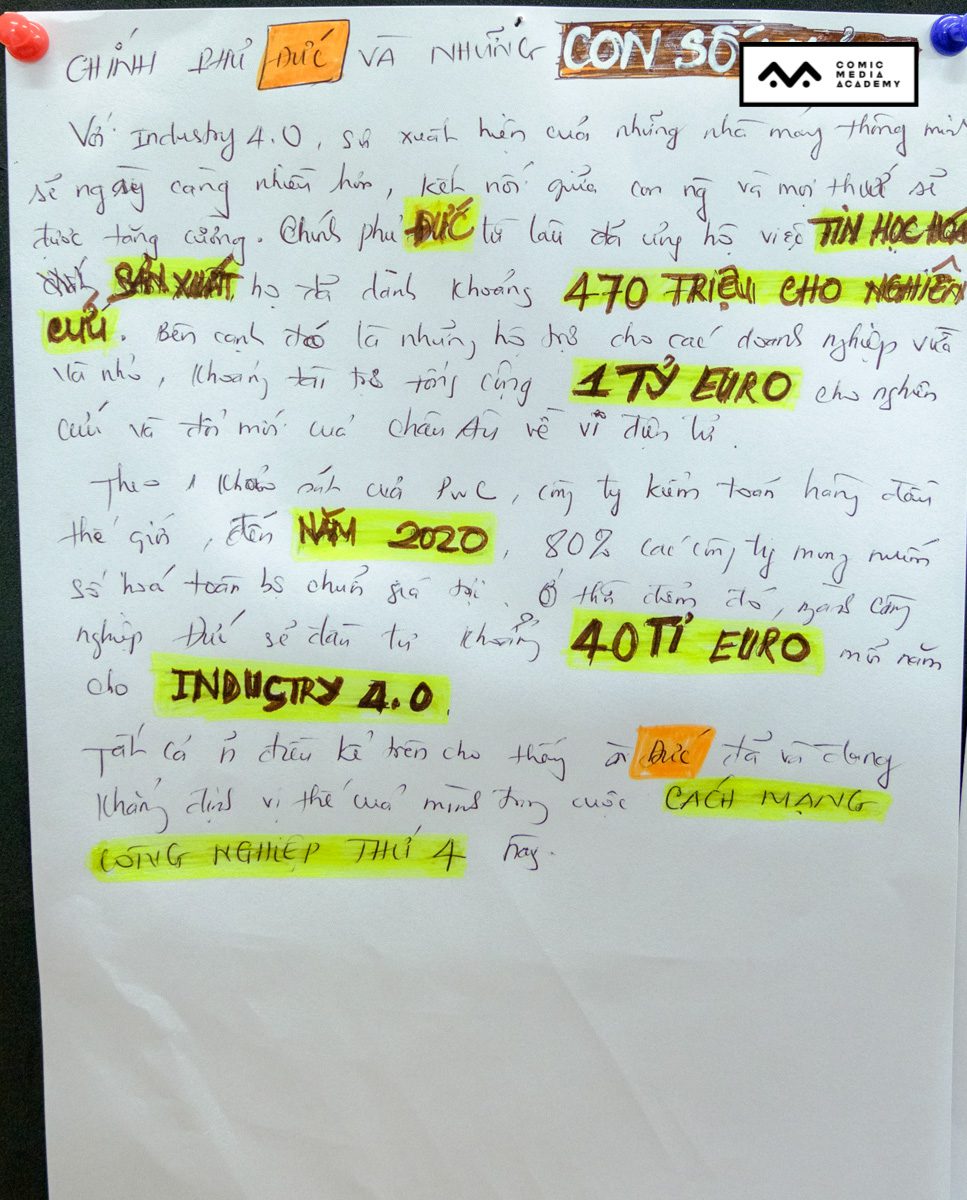 CHÍNH PHỦ ĐỨC VÀ NHỮNG CON SỐ
COMIC
MEDIA
ACADEMY
Với Industry 4.0, sự xuất hiện cuả những nhà máy thông minh
sẽ ngày càng nhiều hơn, kết nối giữa con ng và mọi thứ sẽ
được tăng cường. Chính phủ ĐỨC từ lâu đã ủng hộ việc TIN HỌC HOÁ
SẢN XUẤT họ đã dành khoảng 470 TRIỆU CHO NGHIÊN
CỨU. Bên cạnh đó là những hỗ trợ cho các doanh nghiệp vừa
và nhỏ, khoảng tài trợ tổng cộng 1 TỶ EURO cho nghiên
cứu và đổi mới cuả Châu Âu về vi điện tử.
Theo 1 khảo sát cuả PwC, công ty kiểm toán hàng đầu
thế giới, đến NĂM 2020, 80% các công ty mong muốn
số hoá toàn bộ chuỗi giá trị. Ở thời điểm đó, ngành công
nghiệp Đức sẽ đầu tư khoảng 40 TỈ EURO mỗi năm
cho INDUSTRY 4.0.
Tất cả n điều kể trên cho thấy Đức đã và đang
khẳng định vị thế cuả mình trong cuộc CÁCH MẠNG
CÔNG NGHIỆP THỨ 4 này.